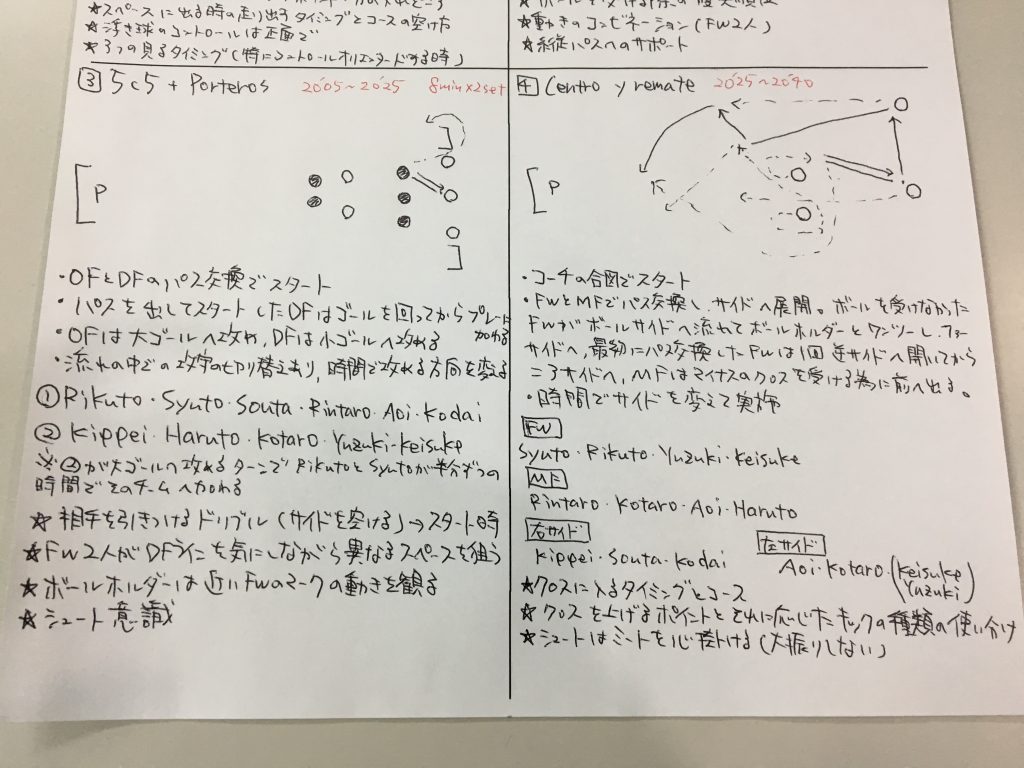 ★スペースに出る時の走り出すタイミングとコースの空け方
★浮き球のコントロールは正面で
★3つの見るタイミング(特にコントロールオリエンタードする時)
★動きのコンビネーション(FW2人)
★縦パスへのサポート
3 5c5 + Porteros 20'05〜20'25 8min×2set
P
・OFとDFのパス交換でスタート
・パスを出してスタートしたDFはゴールを回ってからプレーに加わる
・OFは大ゴールへ攻め、DFは小ゴールへ攻める
・流れの中での攻守の切り替えあり、時間で攻める方向を変える
① Rikuto・Syuto・Souta・Rintaro・Aoi・Kodai
② Kippei・Haruto・Kotaro・Yuzuki・Keisuke
※②が大ゴールへ攻めるターンでRikutoとSyutoが半分ずつの
時間でそのチームへ加わる
★相手を引きつけるドリブル(サイドを空ける)→スタート時
★FW2人がDFラインを気にしながら異なるスペースを狙う
★ボールホルダーは近いFWのマークの動きを観る
★シュート意識
4 Centro y remate 20'25〜20'40
P
・コーチの合図でスタート
・FWとMFでパス交換し、サイドへ展開。ボールを受けなかった
FWがボールサイドへ流れてボールホルダーとワンツーし、ファー
サイドへ、最初にパス交換したFWは1回逆サイドへ開いてから
ニアサイドへ、MFはマイナスのクロスを受ける為に前へ出る。
・時間でサイドを変えて実施
FW
Syuto・Rikuto・Yuzuki・Keisuke
MF
Rintaro・Kotaro・Aoi・Haruto
右サイド
Kippei・Souta・Kodai
左サイド
Aoi・Kotaro (Keisuke
Yuzuki)
★クロスに入るタイミングとコース
★クロスを上げるポイントとそれに応じたキックの種類の使い分け
★シュートはミートを心掛ける(大振りしない)